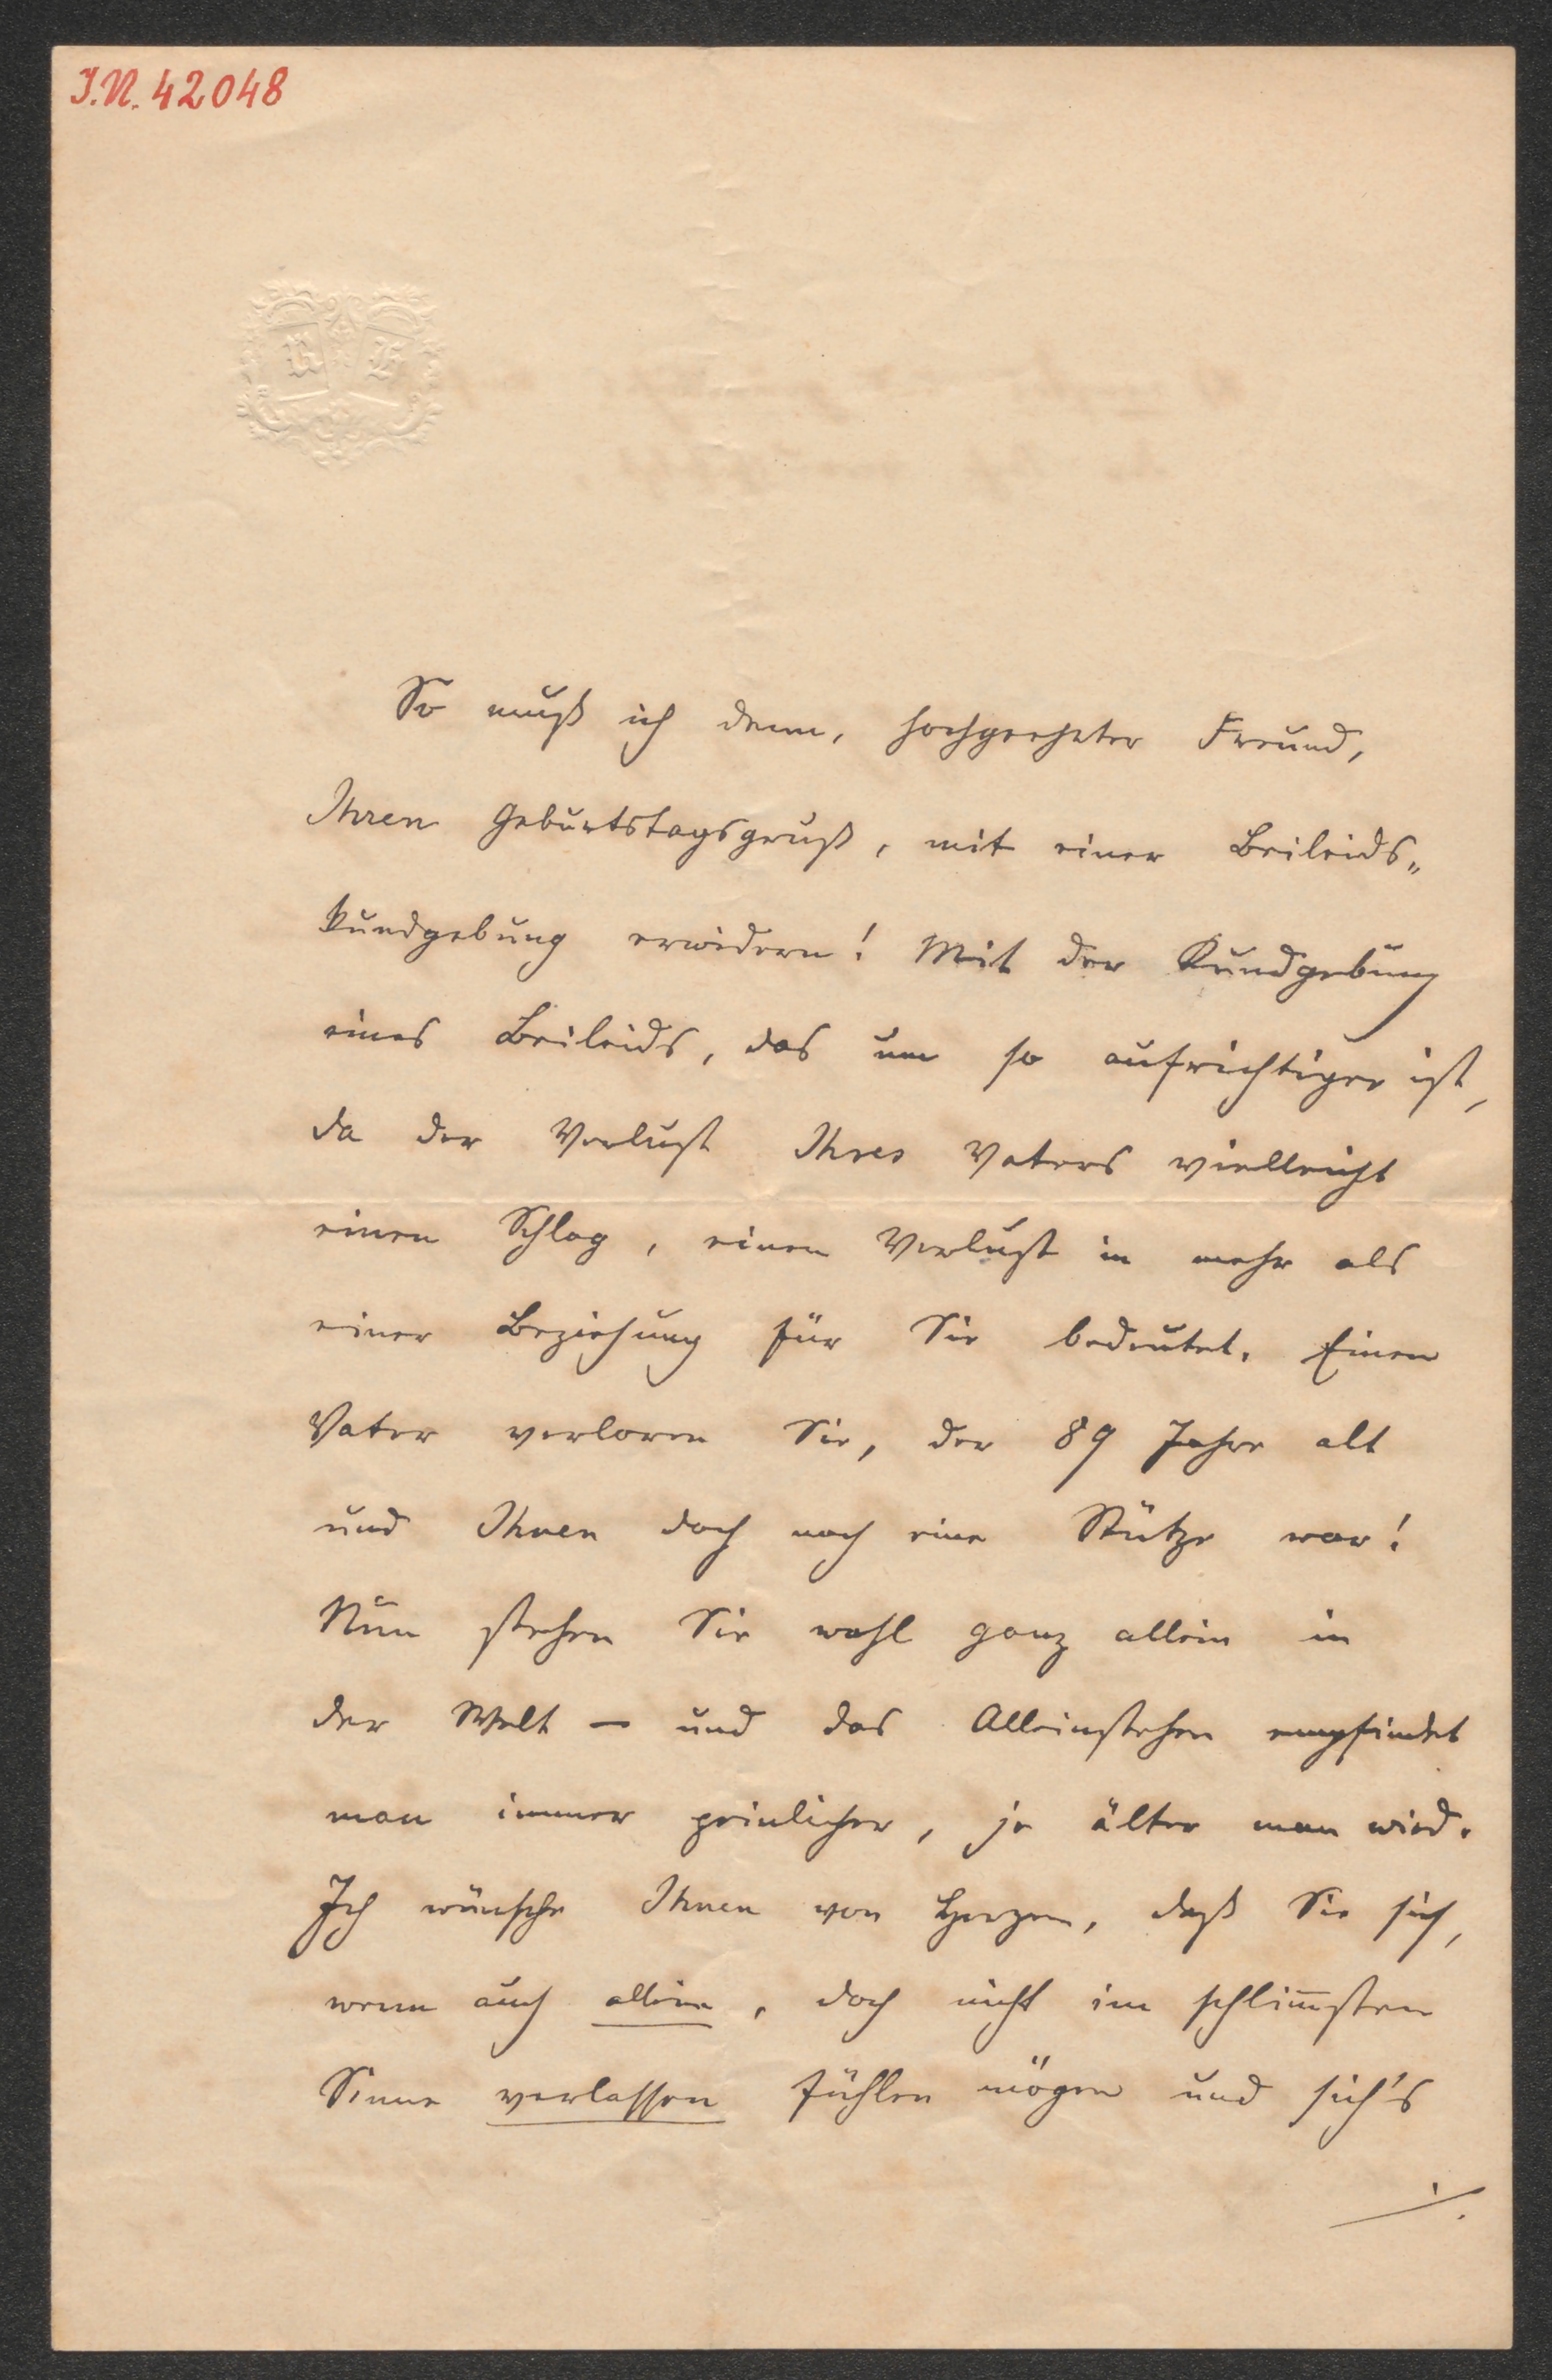 I.N. 42048
So muß ich denn, hochgeehrter Freund,
Ihren Geburtstagsgruß, mit einer Beileids„
kundgebung erwidern! Mit der Kundgebung
eines Beileids, das um so aufrichtiger ist,
da der Verlust Ihres Vaters vielleicht
einen Schlag, einen Verlust in mehr als
einer Beziehung für Sie bedeutet. Einen
Vater verloren Sie, der 89 Jahre alt
und Ihnen doch noch eine Stütze war!
Nun stehen Sie wohl ganz allein in
der Welt — und das Alleinstehen empfindet
man immer peinlicher, je älter man wird.
Ich wünsche Ihnen von Herzen, daß Sie sich,
wenn auch allein, doch nicht im schlim̅sten
Sinne verlassen fühlen mögen und sich's
./.